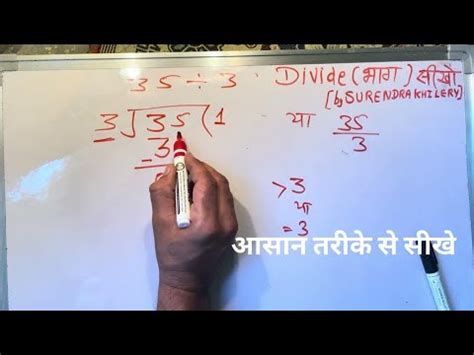 35÷3 Divide(भाग) सीखो
[by SURENDRA KHILERY]
3) 35 (1 या 35/3
-3
>3
या
=3
आसान तरीके से सीखे